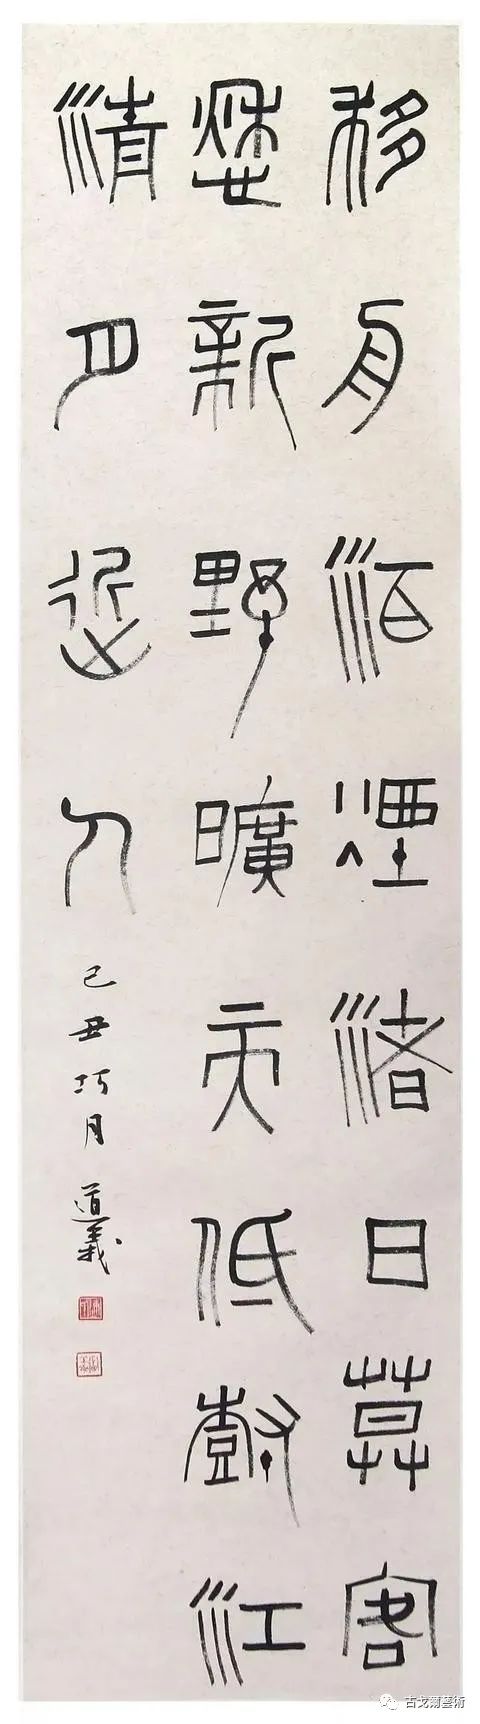 移舟泊煙渚日莫客
愁新野曠天低樹江
清月近人
己丑巧月道義
古戈爾藝術